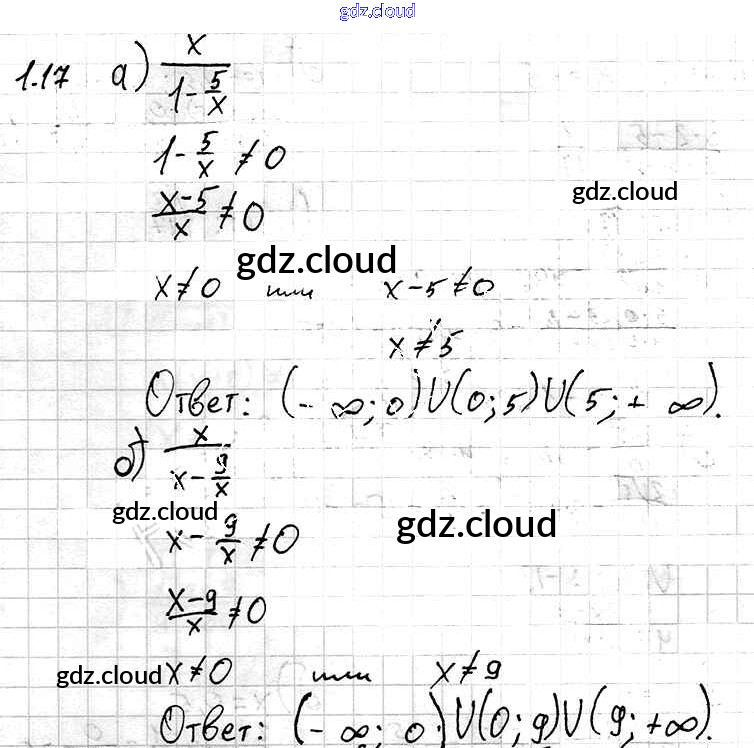 gdz.cloud
1.17 а) x/(1 - 5/x)
1 - 5/x ≠ 0
(x-5)/x ≠ 0
gdz.cloud
gdz.cloud
x ≠ 0 или x - 5 ≠ 0
x ≠ 5
Ответ: (-∞; 0) U (0; 5) U (5; + ∞).
б) x/(x - 9/x)
gdz.cloud
gdz.cloud
x - 9/x ≠ 0
(x-9)/x ≠ 0
gdz.cloud
x ≠ 0 или x ≠ 9
Ответ: (-∞; 0) U (0; 9) U (9; +∞).